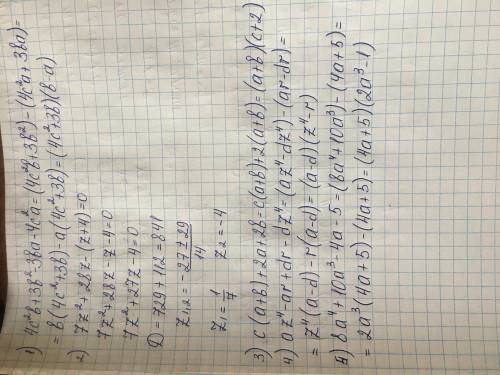 1) 4c²b+3b²-3ba-4c²a=(4c²b+3b²)-(4c²a+3ba)=
=b(4c²+3b)-a(4c²+3b)=(4c²+3b)(b-a)
2) 7z²+28z-(z+4)=0
7z²+28z-z-4=0
7z²+27z-4=0
D=729+112=841
z₁,₂=(-27±29)/14
z₁=1/7 z₂=-4
3) c(a+b)+2a+2b=c(a+b)+2(a+b)=(a+b)(c+2)
4) az⁴-ar+dr-dz⁴=(az⁴-dz⁴)-(ar-dr)=
=z⁴(a-d)-r(a-d)=(a-d)(z⁴-r)
5) 8a⁴+10a³-4a-5=(8a⁴+10a³)-(4a+5)=
=2a³(4a+5)-(4a+5)=(4a+5)(2a³-1)